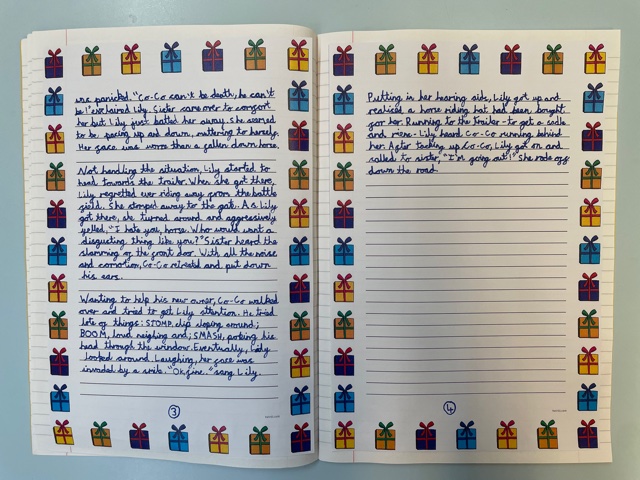 she panicked. "Co-Co can't be death, he can't
be!" exclaimed Lily. Sister came over to comfort
her but Lily just batted her away. She seemed
to be pacing up and down, muttering to herself.
Her face was worse than a fallen down horse.
Not handling the situation, Lily started to
head towards the trailer. When she got there,
Lily regretted ever riding away from the battle
field. She stomped away to the gate. As Lily
got there, she turned around and aggressively
yelled, "I hate you, horse. Who would want a
disgusting thing like you?" Sister heard the
slamming of the front door. With all the noise
and comotion, Co-Co retreated and put down
his ears.
Wanting to help his new owner, Co-Co walked
over and tried to get Lily attention. He tried
lots of things: STOMP, clip cloping around;
BOOM, loud neighing and; SMASH, poking his
head through the window. Eventually, Lily
looked around. Laughing, her face was
invaded by a smile. "Ok, fine." sang Lily.
3
Putting in her hearing aids, Lily got up and
realised a horse riding hat had been bought
for her. Running to the trailer - to get a sadle
and reins - Lily heard Co-Co running behind
her. After tacking up Co-Co, Lily got on and
called to sister, "I'm going out!" She rode off
down the road.
4